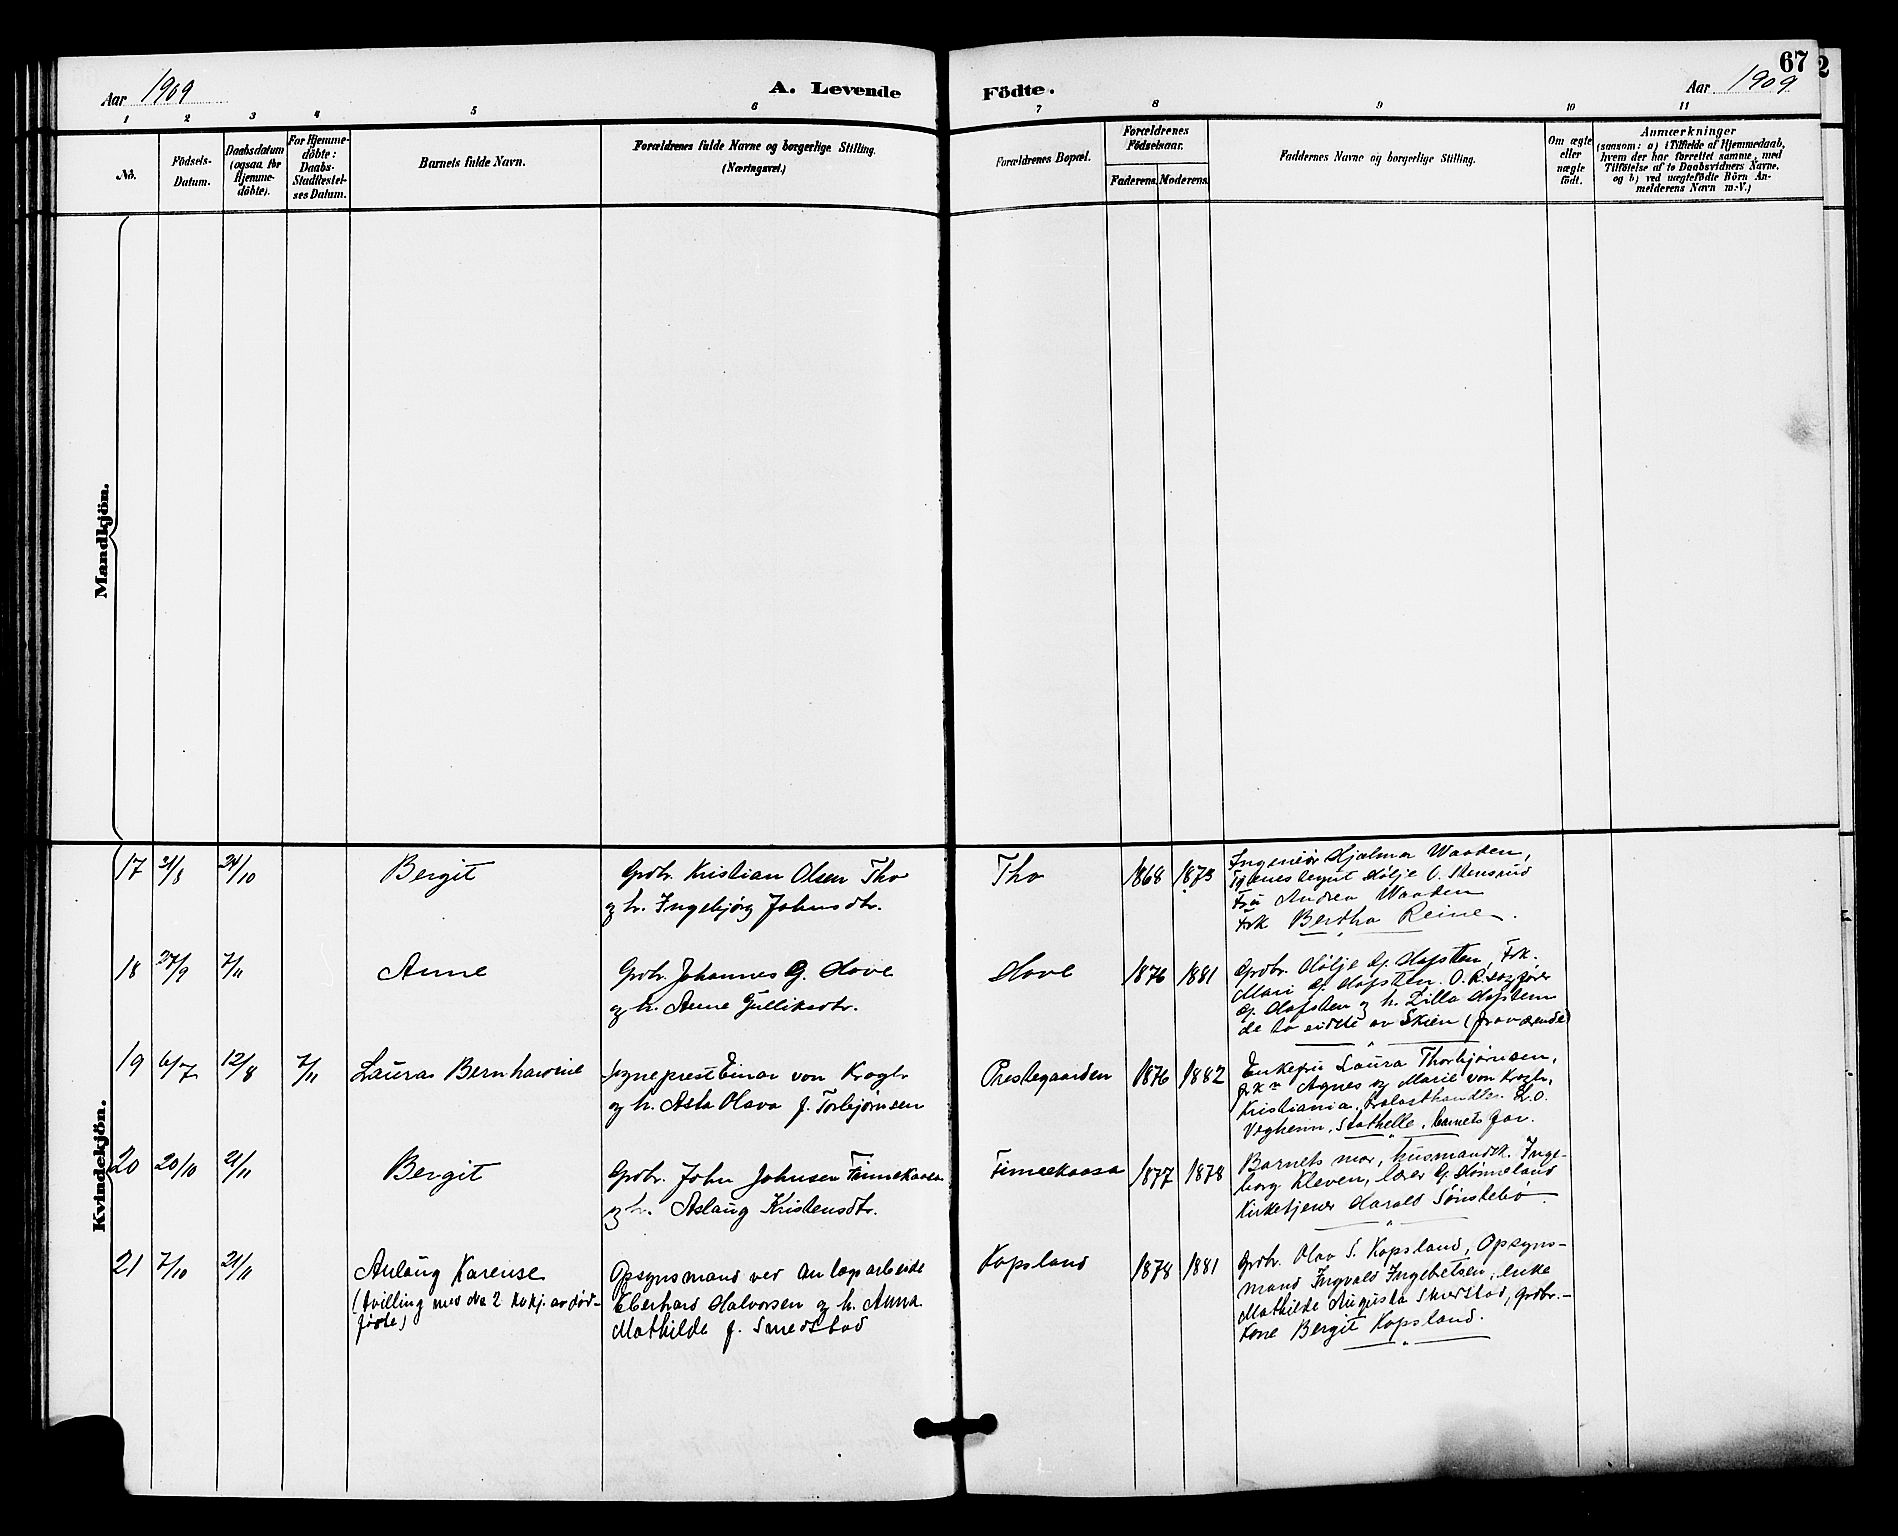 67
Aar 1909
A. Levende Födte.
Aar 1909
1 2 3 4 5 6 7 8 9 10 11
No.
Födsels-
Datum.
Daabsdatum
(ogsaa for
Hjemme-
döbte).
For Hjemme-
döbte:
Daabs-
Stadfæstel-
ses Datum.
Barnets fulde Navn.
Forældrenes fulde Navne og borgerlige Stilling.
(Næringsvei.)
Forældrenes Bopæl.
Forældrenes
Födselsaar.
Faderens. Moderens.
Faddernes Navne og borgerlige Stilling.
Om ægte
eller
uægte
födt.
Anmærkninger
(saasom: a) i Tilfælde af Hjemmedaab,
hvem der har forrettet samme, med
Tilföielse af to Daabsvidners Navne.
og b) ved uægtefödte Börn An-
melderens Navn m.V.)
Mandkjön.
Kvindekjön.
17 31/8 24/10
Bergit
Grdbr. Kristian Olsen Tho
og h. Ingebjørg Johnsdtr.
Tho
1868 1873
Ingeniør Hjalmar Waaden,
Hølje O. Stensrud
Fru Andrea Waaden
Frk Bertha Reine
18 27/9 7/11
Anne
Grdbr. Johannes G. Hove
og h. Anne Gulliksdtr.
Hove
1876 1881
Grdbr. Hølje G. Hafsten, Frk.
Mari G. Hafsten. O.R.sagfører
G. Hafsten og h. Zilla Hafsten
de to sidste av Skien (fraværende)
19 6/7 12/8 7/11
Laura Bernhardine
Sogneprest Einar von Krogh
og h. Asta Olava f. Torbjørnsen
Prestegaarden
1876 1882
Enkefru Laura Thorbjørnsen,
frkn Agnes og Marie von Krogh,
Kristiania, Trælasthandler L.O.
Vegheim, Stathelle, barnets far.
20 20/10 21/11
Bergit
Grdbr. John Johnsen Finnekaasa
og h. Aslaug Kristensdtr.
Finnekaasa
1877 1878
Barnets mor, husmandsk. Inge-
borg Kleven, lærer G. Hønneland
Kirketjener Harald Sønstebø
21 7/10 21/11
Aslaug Karense
(tvilling med No 2 Kvkj. av død-
fødte)
Opsynsmand ved anlægsarbeide
Eberhard Halvorsen og h. Anna
Mathilde f. Smedstad
Kopsland
1878 1881
Grdbr. Olav S. Kopsland, Opsyns-
mand Ingvald Ingebretsen, enke
Mathilde Augusta Smedstad, grdbr.-
kone Bergit Kopsland.